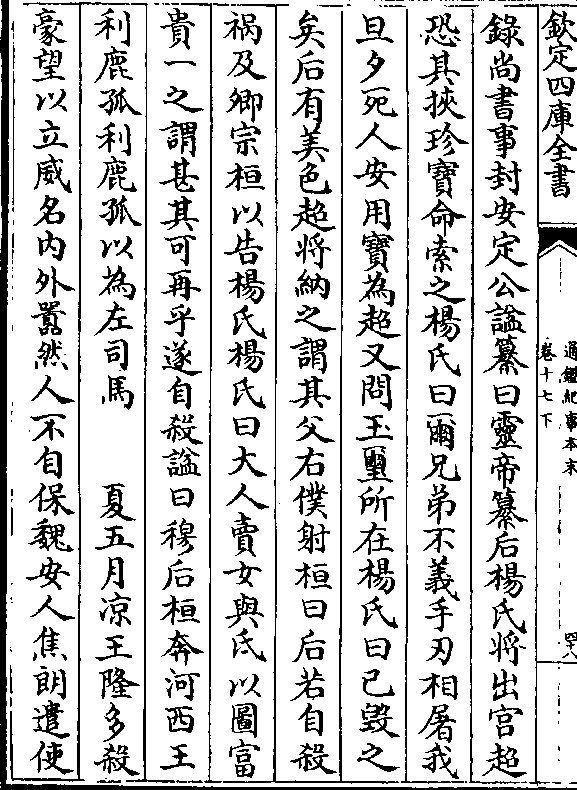 欽定四庫全書
通鑑紀事本末
卷十七下
四十八
錄尚書事封安定公謚纂曰靈帝纂后楊氏將出宮超
恐其挾珍寶命索之楊氏曰爾兄弟不義手刃相屠我
旦夕死人安用寶為超又問玉璽所在楊氏曰已毀之
矣后有美色超將納之謂其父右僕射桓曰后若自殺
禍及卿宗桓以告楊氏楊氏曰大人賣女與氐以圖富
貴一之謂甚其可再乎遂自殺謚曰穆后桓奔河西王
利鹿孤利鹿孤以為左司馬　夏五月凉王隆多殺
豪望以立威名内外囂然人不自保魏安人焦朗遣使